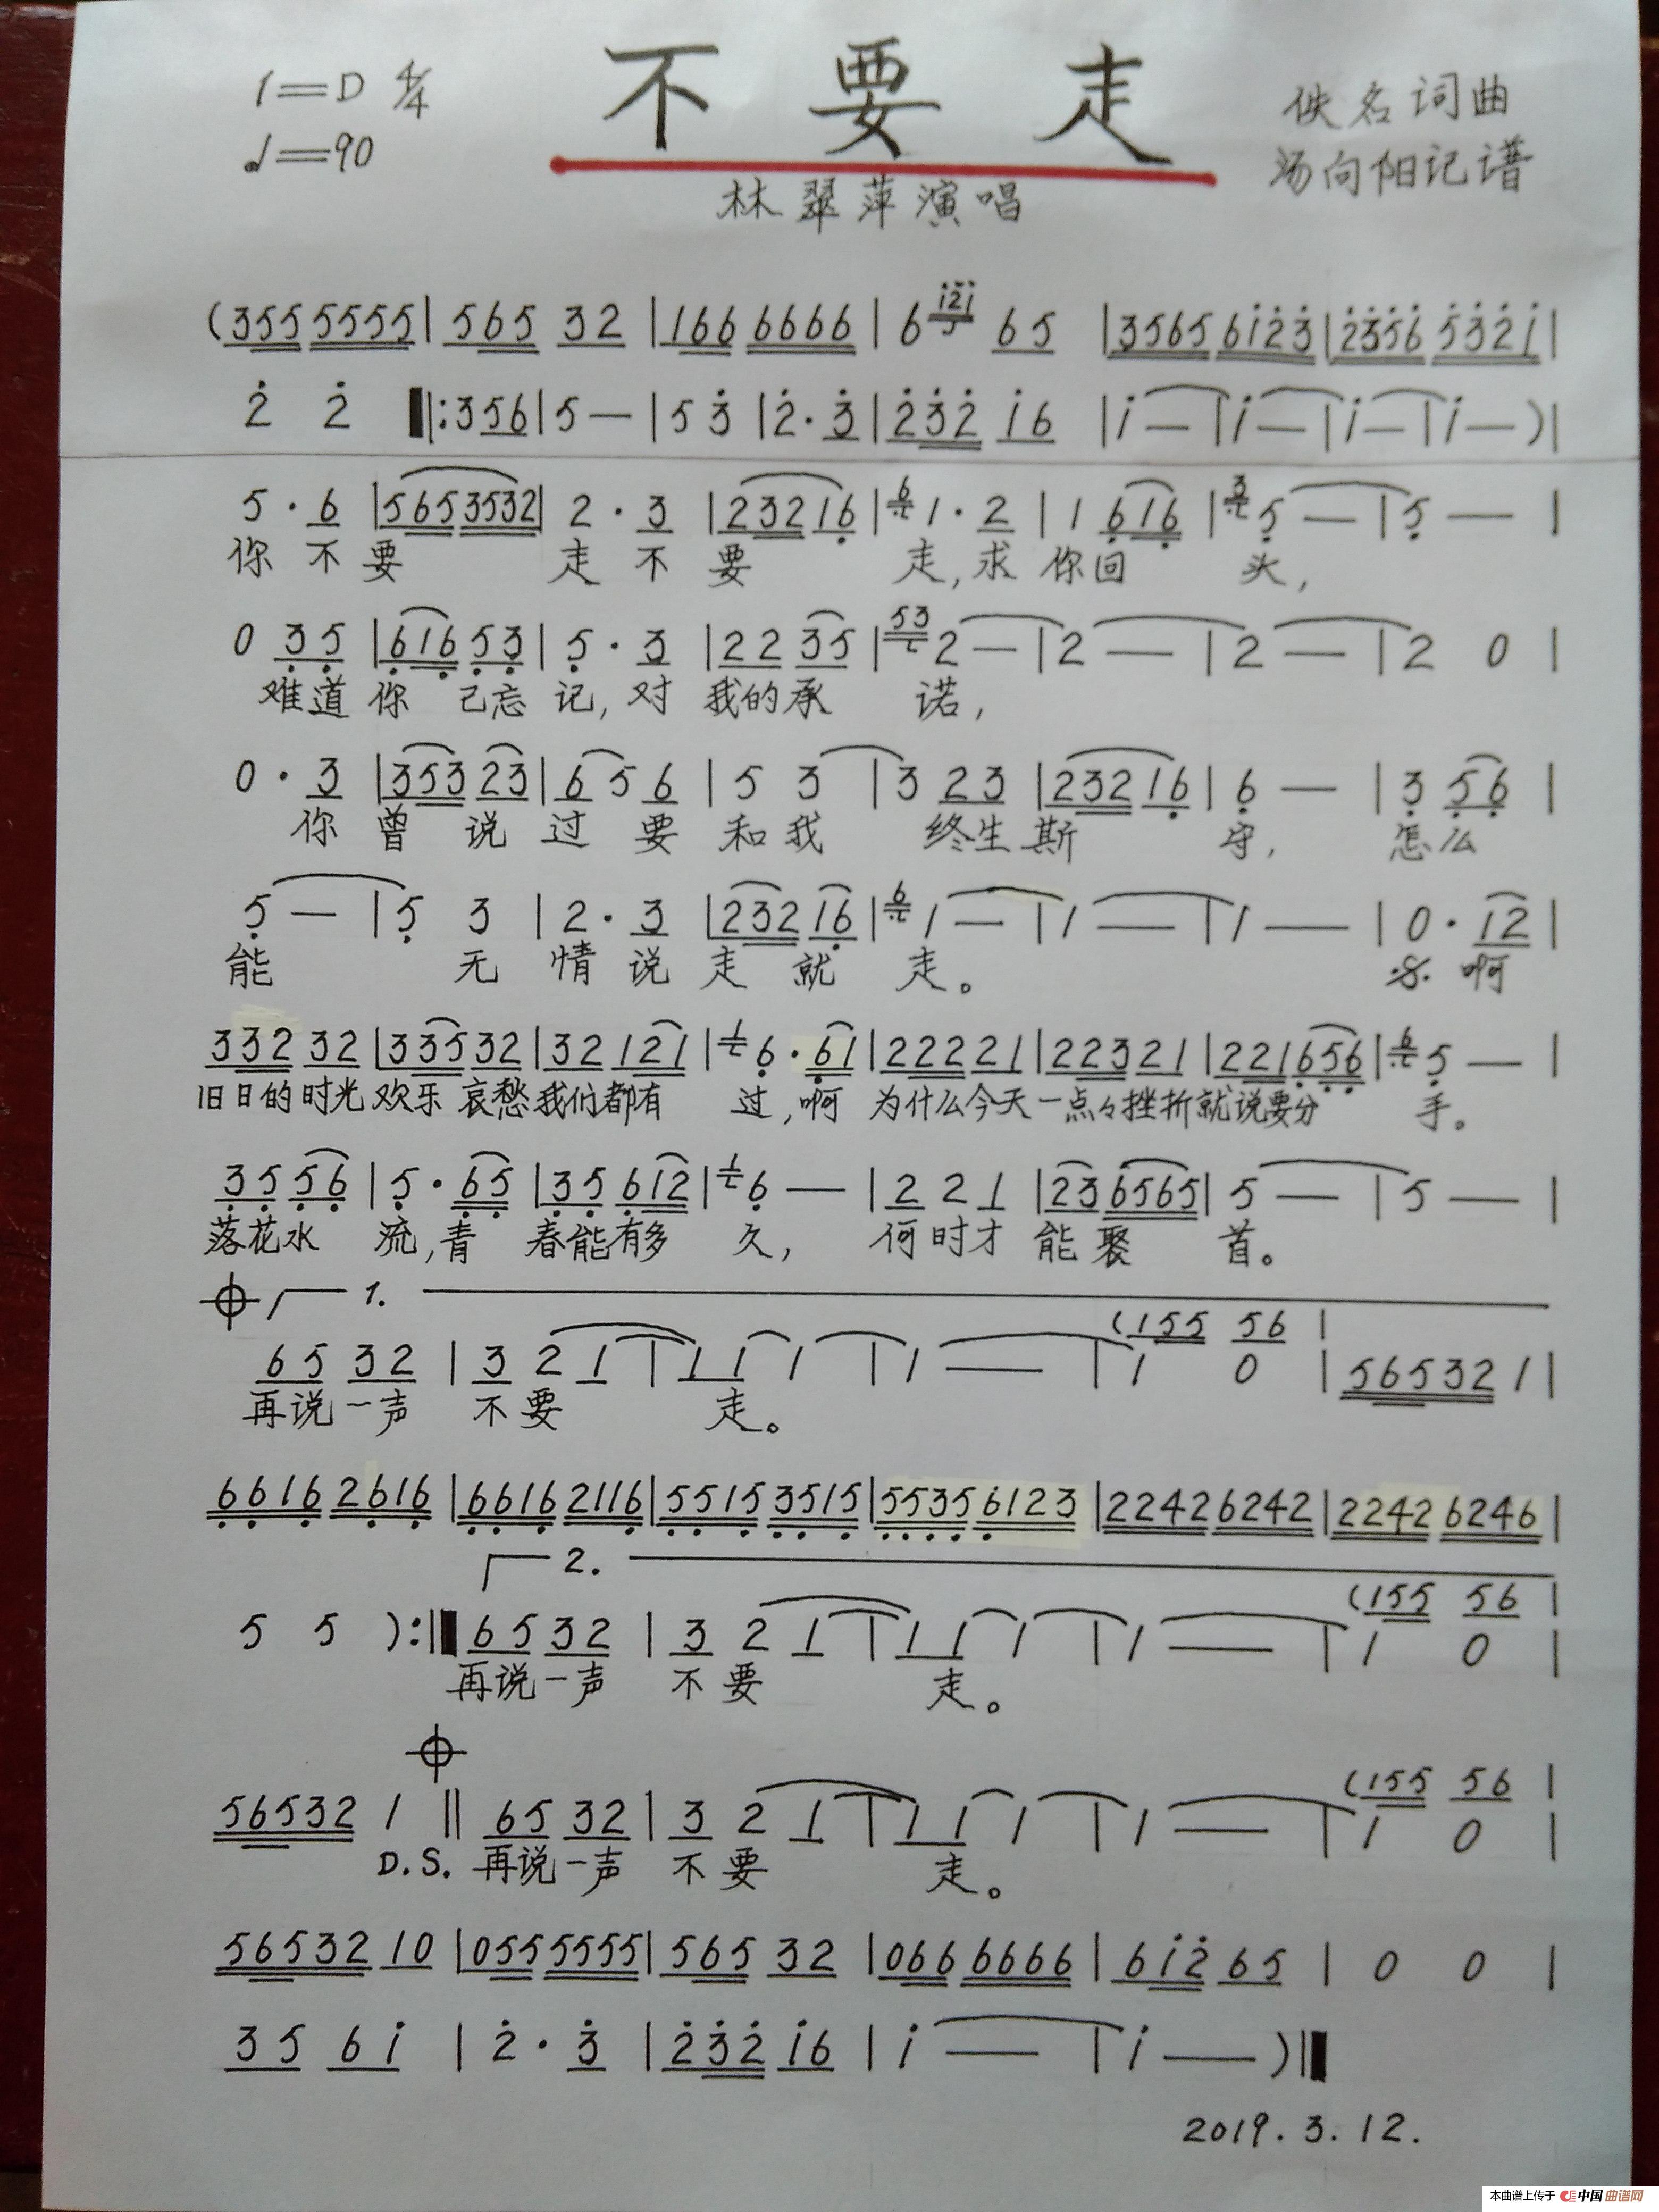 1=D 4/4
不要走
佚名词曲
♩=90
汤向阳记谱
林翠萍演唱
(355 5555| 565 32 |166 6666| 6 i2i 65 |3565 6i23|2356 532i|
2 2 |:356|5—|5 3|2·3|232 i6 |i—|i—|i—|i—)|
5·6 |565 3532| 2·3 |232 16|6 1·2 |1 616 |3 5—|5— |
你不要 走不要 走,求你回 头,
0 35 |616 53| 5·3 |22 35|53 2—|2—|2—|2 0 |
难道你 己忘记,对我的承 诺,
0·3 |353 23|6 5 6 |5 3 |3 23 |232 16|6— |3 56 |
你曾说过要和我 终生斯 守,怎么
5—|5 3 |2·3 |232 16|6 1—|1—|1— |0·12|
能 无情说走就 走。 𝄋 啊
332 32|335 32|32 121|1 6·61|222 21|223 21|221 656|6 5— |
旧日的时光欢乐哀愁我们都有 过,啊 为什么今天一点々挫折就说要分 手。
35 56 |5·65|35 612|1 6— |2 2 1 |23 6565| 5—|5— |
落花水 流,青春能有多 久,何时才能聚 首。
1.
(155 56 |
65 32 |3 2 1 |1 1 1 |1—|1 0 |56532 1|
再说一声 不要 走。
6616 2616 |6616 2116|5515 3515|5535 6123|2242 6242|2242 6246|
2.
(155 56 |
5 5 ):| 65 32 |3 2 1 |1 1 1 |1—|1 0 |
再说一声 不要 走。
(155 56 |
56532 1 || 65 32 |3 2 1 |1 1 1 |1—|1 0 |
D.S. 再说一声 不要 走。
56532 10 |055 5555|565 32 |066 6666|6i2 65 |0 0 |
35 6i |2·3 |232 i6 |i—|i—)|
2019.3.12.
本曲谱上传于 中国曲谱网